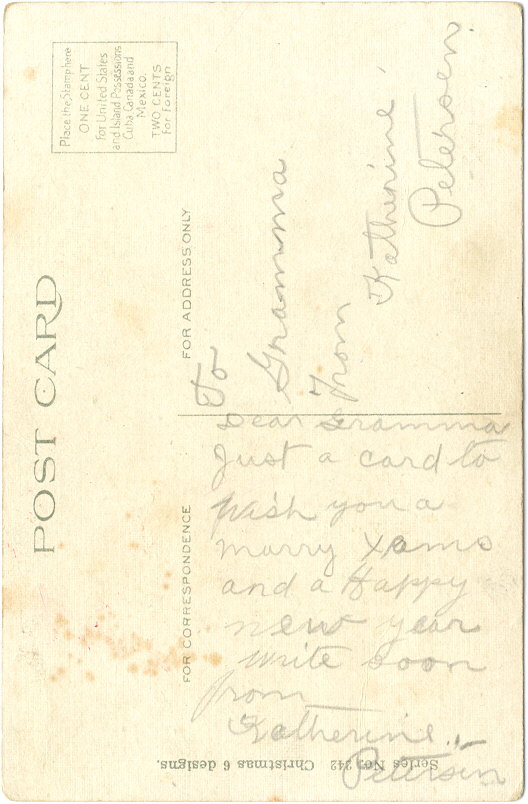 POST CARD
Place the Stamp here
ONE CENT
For United States
and Island Possessions
Cuba Canada and
Mexico.
TWO CENTS
For Foreign
FOR CORRESPONDENCE
FOR ADDRESS ONLY
To
Gramma
From
Katherine
Petersen.
Dear Gramma
Just a card to
wish you a
marry Xams
and a Happy
new year
write soon
from
Katherine
Petersen
Series No. 342 Christmas 6 designs.